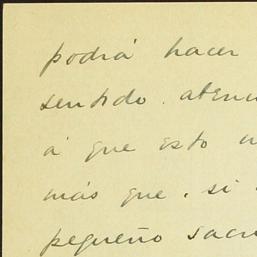 podrá hacer
sentido. atenc
á que esto
más que, si
pequeño sacr